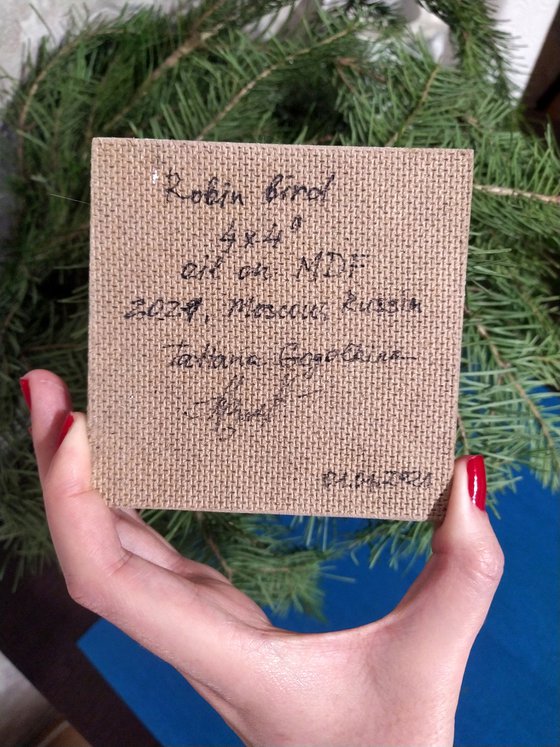 Robin Bird
4x4"
oil on MDF
2021, Moscow, Russia
Tatiana Gogolkina
01.01.2021